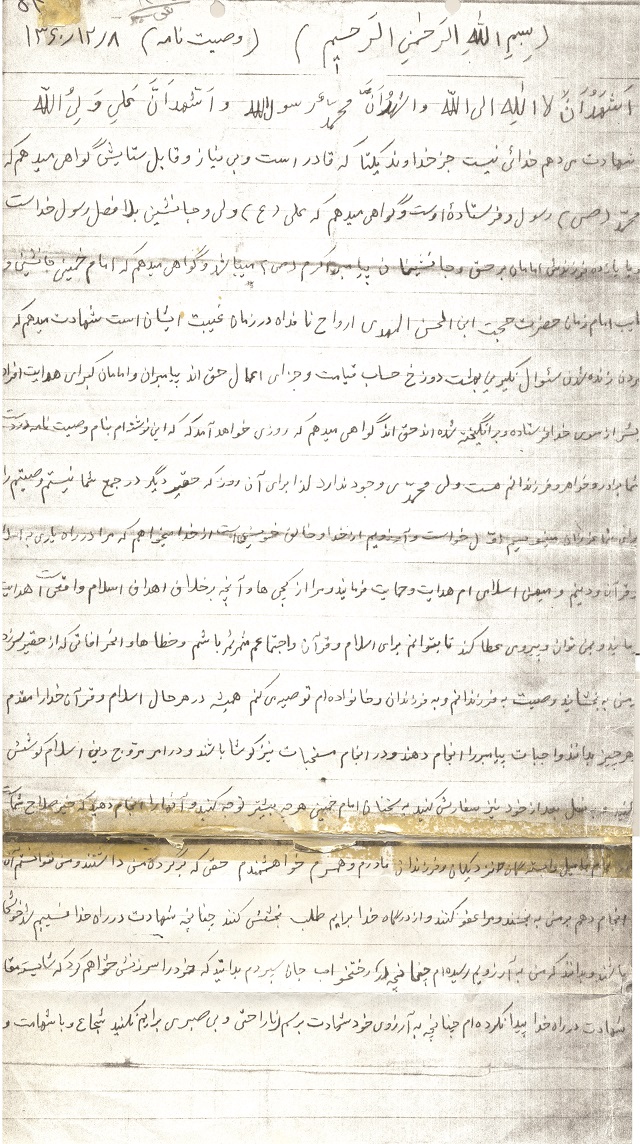 (بِسمِ اللهِ الرَحمٰنِ الرَحیمِ) (وصیت نامه) ۱۳۶۰/۱۲/۸
اَشهَدُ اَنَّ لا اِلٰهِ الی الله و اشهَدُ اَنَّ محمّد رسول الله و اَشهد اَنَّ علی وَلیُ الله
شهادت می دهم خدائی نیست جز خداوند یکتا که قادر است و بی نیاز و قابل ستایش گواهی میدهم که
محمّد (ص) رسول و فرستادهٔ اوست و گواهی میدهم که علی (ع) ولی و جانشین بلافصل رسول خداست
و یازده فرزندش امامان بر حق و جانشینان پیامبر اکرم (ص) میباشند و گواهی میدهم که امام خمینی جانشین و
نایب امام زمان حضرت حجت ابن الحسن المهدی ارواح نا فداه در زمان غیبت ایشان است شهادت میدهم که
زنده شدن سئوال نکیر بهشت دوزخ حساب قیامت و جزای اعمال حق اند پیامبران و امامان که برای هدایت افراد
بشر از سوی خدا فرستاده و برانگیخته شده اند حق اند گواهی میدهم که روزی خواهد آمد که که این نوشته ام بنام وصیت نامه در دست
شما برادر و خواهر و فرزندانم هست ولی محمّدی وجود ندارد لذا برای آن روز که حقیر دیگر در جمع شما نیستم وصیتم را
برای شما عزیزان مینویسم اوّل خواست و آرزویم از خدا و خالق خویش است از خدا میخواهم که مرا در راه یاری به اسلام
و قرآن و دینم و میهن اسلامی ام هدایت و حمایت فرماید و مرا از کجی ها و آنچه برخلاف اهداف اسلام واقعی است هدایت
نماید و بمن توان و نیروی عطا کند تا بتوانم برای اسلام و قرآن و اجتماعم مثمر ثمر باشم و خطاها و انحرافاتی که از حقیر سر زد
بمن به بخشاید وصیت به فرزندانم و به فرزندان و خانواده ام توصیه می کنم همیشه در هر حال اسلام و قرآن خدا را مقدم
بهر چیز بدانند واجبات پیامبر را انجام دهند و در انجام مستحبات نیز کوشا باشند و در امر ترویج دین اسلام کوشش
کنند و به نسل بعد از خود نیز سفارش کنند به سخنان امام خمینی هر چه بیشتر توجه کنید و آنها را انجام دهید که خیر صلاح شماست
نزدیکان و فرزندان مادرم و همسرم خواهشمندم حقی که بر گردن من داشتند و من نتوانستم آن
انجام دهم بر من به بخشند و مرا عفو کنند و از درگاه خدا برایم طلب بخشش کنند چنانچه شهادت در راه خدا نسیبم شد خوشحال
باشند و بدانند که من به آرزویم رسیده ام چنانچه در رختخواب جان سپردم بدانید که خود را سرزنش خواهم کرد که شایستهٔ مقام
شهادت در راه خدا پیدا نکرده ام چنانچه به آرزوی خود شهادت برسم ناراحتی و بی صبری برایم نکنید شجاع و با شهامت و